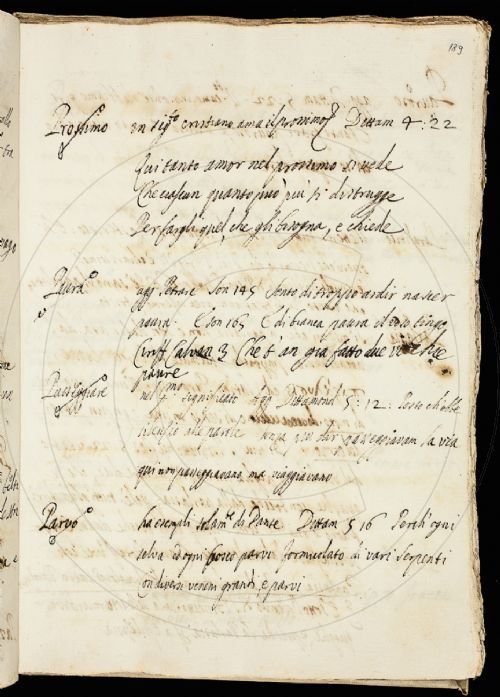 189
Prossimo in sig.to cristiano ama il prossimo Dittam 4: 22
Qui tanto amor nel prossimo si vede
Che ciascun quanto può più si distrugge
Per fargli quel, che gli bisogna, e chiede
Paura agg Petrarc Son 145 Sento di troppo ardir nascer
paura. E Son 165 E di bianca paura il viso tinge
Calvan 3 Che t'an già fatto due
paure
Passeggiare nel pmo significato agg Dittamond 5: 12: Posto ch'ebbe
silentio alle parole passeggiavam, la via
qui non passeggiavano ma viaggiavano
Parvo ha esempli solam.te di Dante Dittam 5 16 Perch'ogni
selva ed ogni parvi formicolato di vari serpenti
con diversi veneni grandi, e parvi